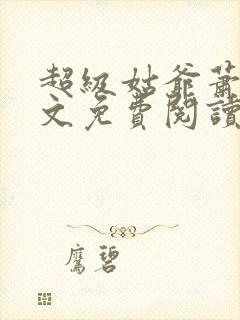 超級姑爺蕭
文免費閱讀
鷹碧